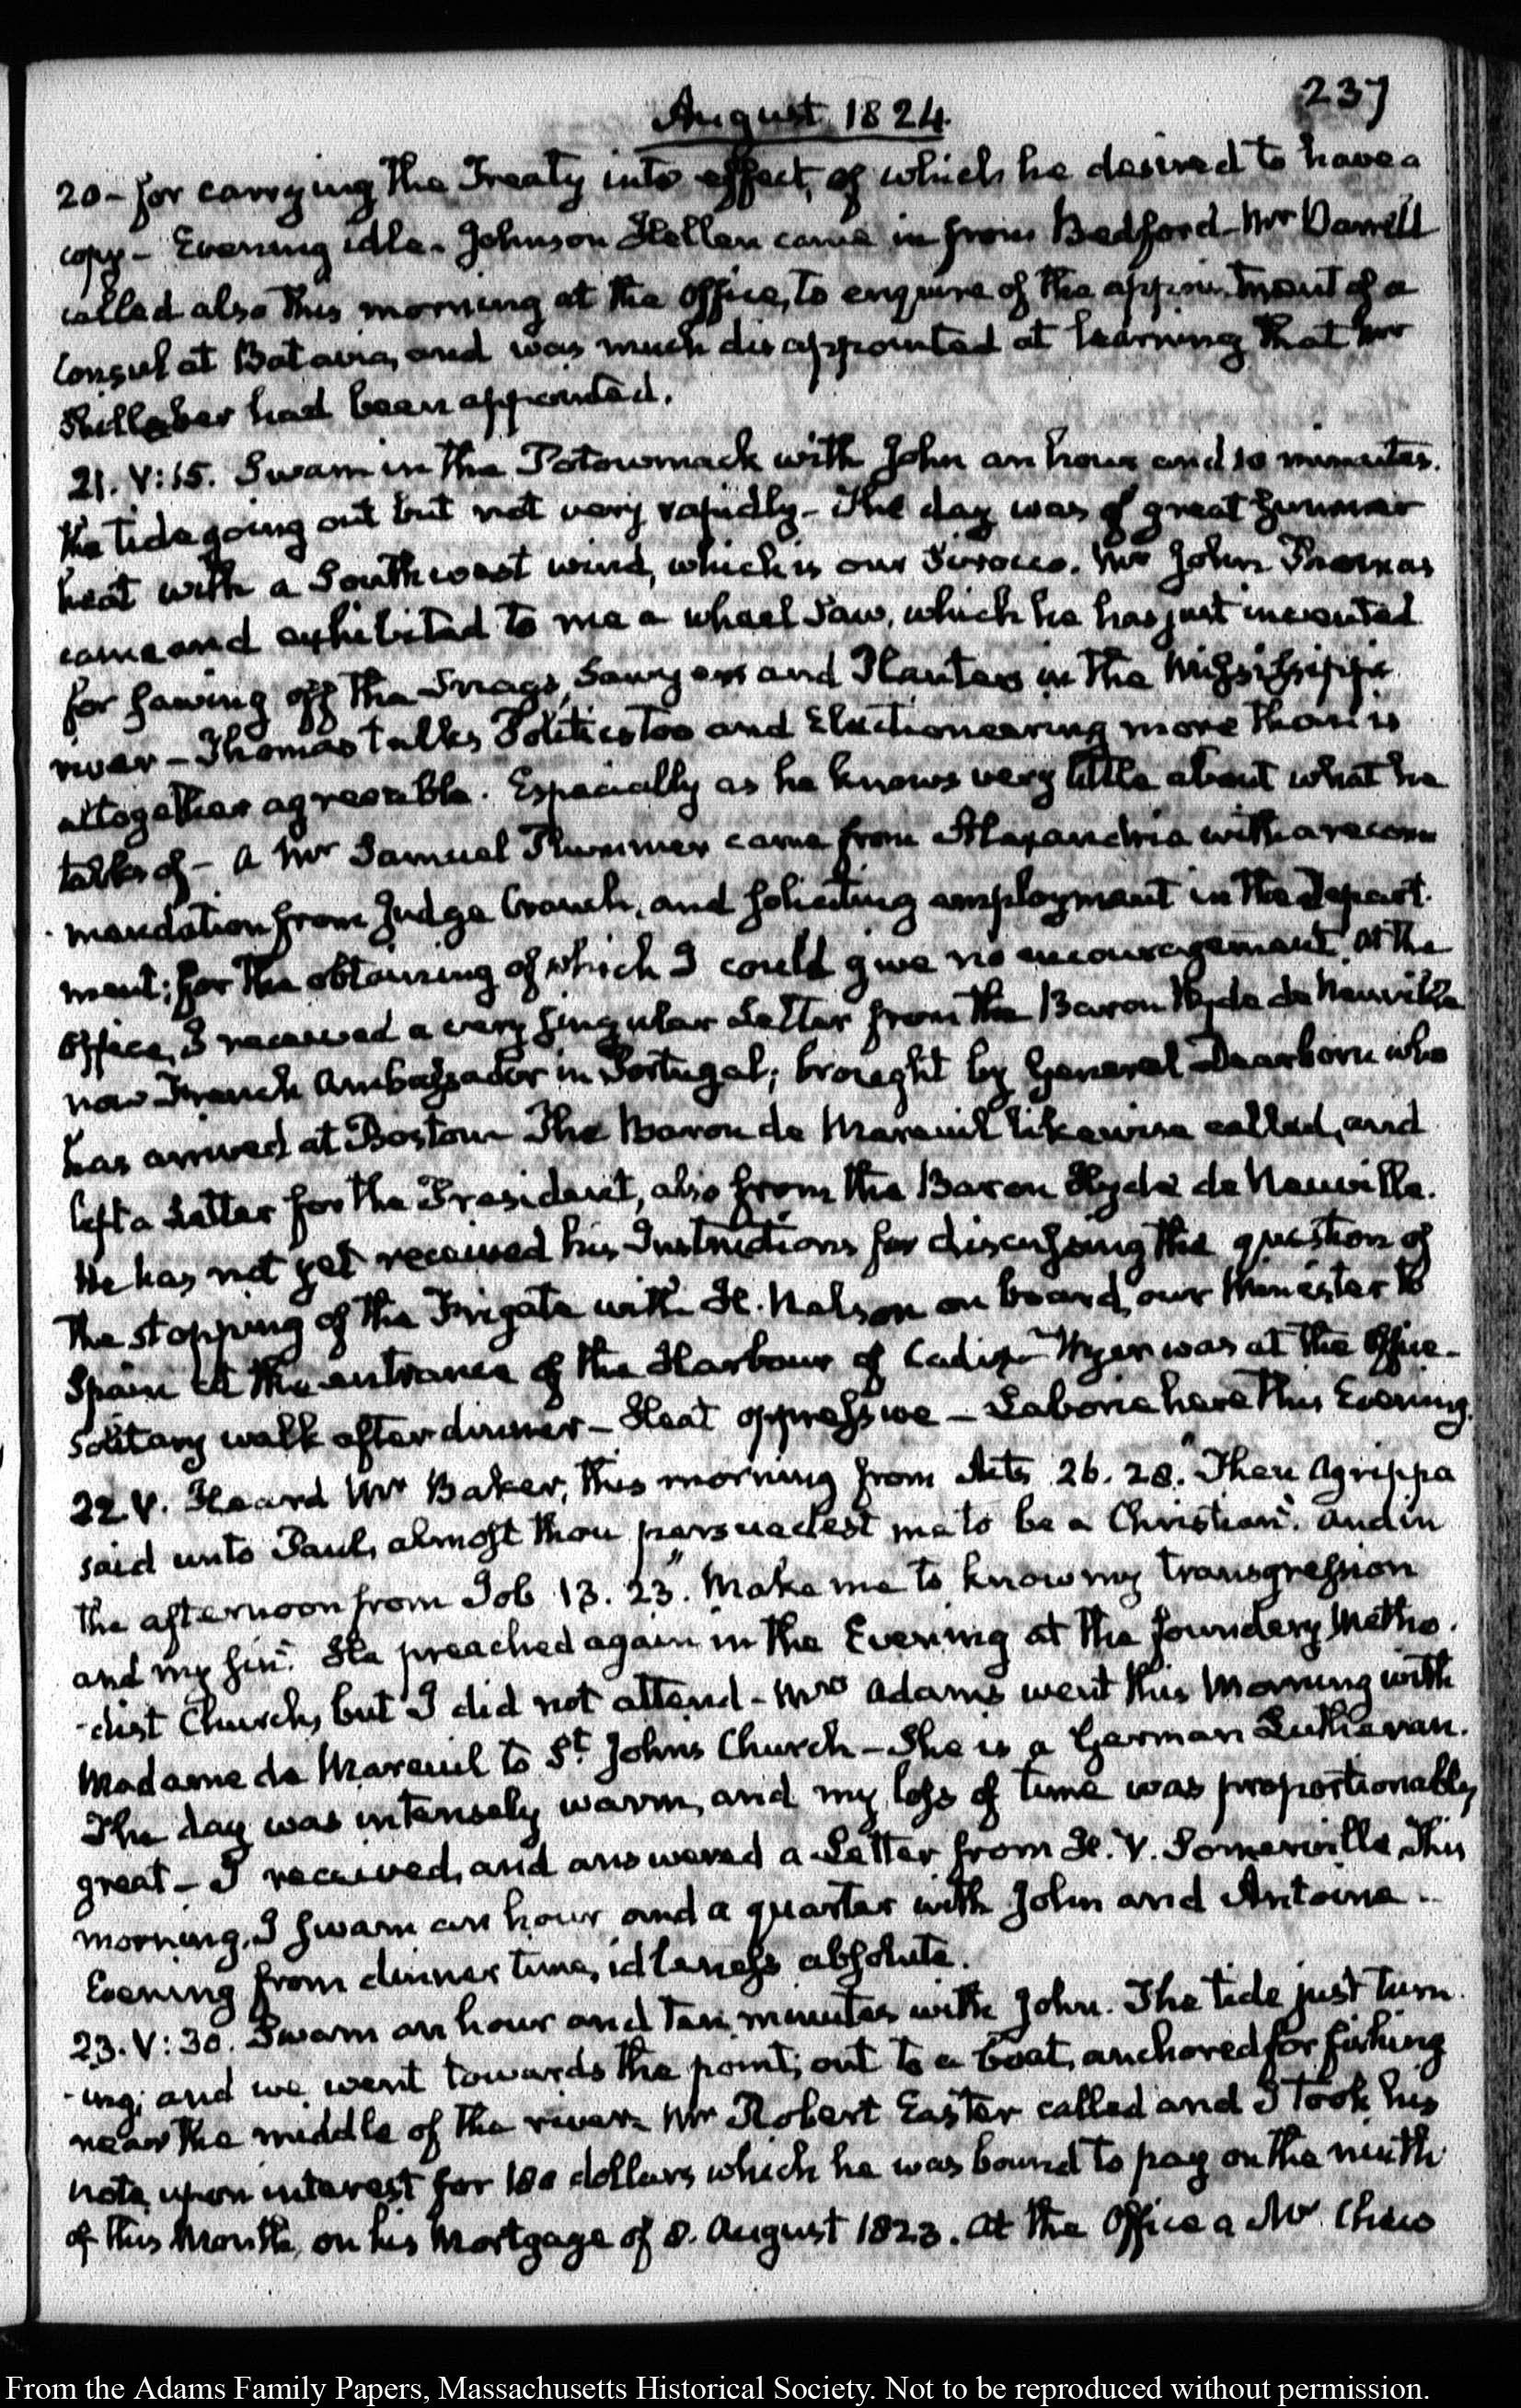 237
August 1824.
20- for carrying the Treaty into effect, of which he desired to have a
copy - Evening idle. Johnson Hellen came in from Bedford - Mr Darrell
called also this morning at the Office, to enquire of the appointment of a
Consul at Batavia, and was much disappointed at learning that Mr
Shillaber had been appointed.
21. V:15. Swam in the Potowmack with John an hour and 10 minutes.
The tide going out but not very rapidly - The day was of great summer
heat with a Southwest wind, which is our Sirocco. Mr John Thomas
came and exhibited to me a wheel Saw, which he has just invented
for sawing off the Snags, Sawyers and Planters in the Mississippi
river - Thomas talks Politics too and Electioneering more than is
altogether agreeable. Especially as he knows very little about what he
talks of - A Mr Samuel Plummer came from Alexandria with a recom
mendation from Judge Cranch, and soliciting employment in the Depart-
ment; for the obtaining of which I could give no encouragement. At the
Office, I received a very singular Letter from the Baron Hyde de Neuville
now French Ambassador in Portugal; brought by General Dearborn who
has arrived at Boston - The Baron de Mareuil likewise called, and
left a Letter for the President, also from the Baron Hyde de Neuville.
He has not yet received his Instructions for discussing the question of
the stopping of the Frigate with H. Nelson on board, our Minister to
Spain at the entrance of the Harbour of Cadiz - Wyer was at the Office -
Solitary walk after dinner - Heat oppressive - Laborie here this Evening.
22. V. Heard Mr Baker, this morning from Acts 26. 28. "Then Agrippa
said unto Paul, almost thou persuadest me to be a Christian". and in
the afternoon from Job 13. 23. "Make me to know my transgression
and my sin". He preached again in the Evening at the foundery Metho-
-dist Church, but I did not attend - Mrs Adams went this Morning with
Madame de Mareuil to St Johns Church - She is a German Lutheran.
The day was intensely warm, and my loss of time was proportionably
great - I received, and answered a Letter from H. V. Somerville, This
morning, I swam an hour and a quarter with John and Antoine -
Evening from dinner time, idleness absolute.
23. V:30. Swam an hour and ten minutes with John. The tide just turn
-ing; and we went towards the point; out to a boat, anchored for fishing
near the middle of the river - Mr Robert Easter called and I took his
note, upon interest for 180 dollars which he was bound to pay on the ninth
of this Month, on his Mortgage of 8. August 1823. At the Office a Mr Chew
From the Adams Family Papers, Massachusetts Historical Society. Not to be reproduced without permission.